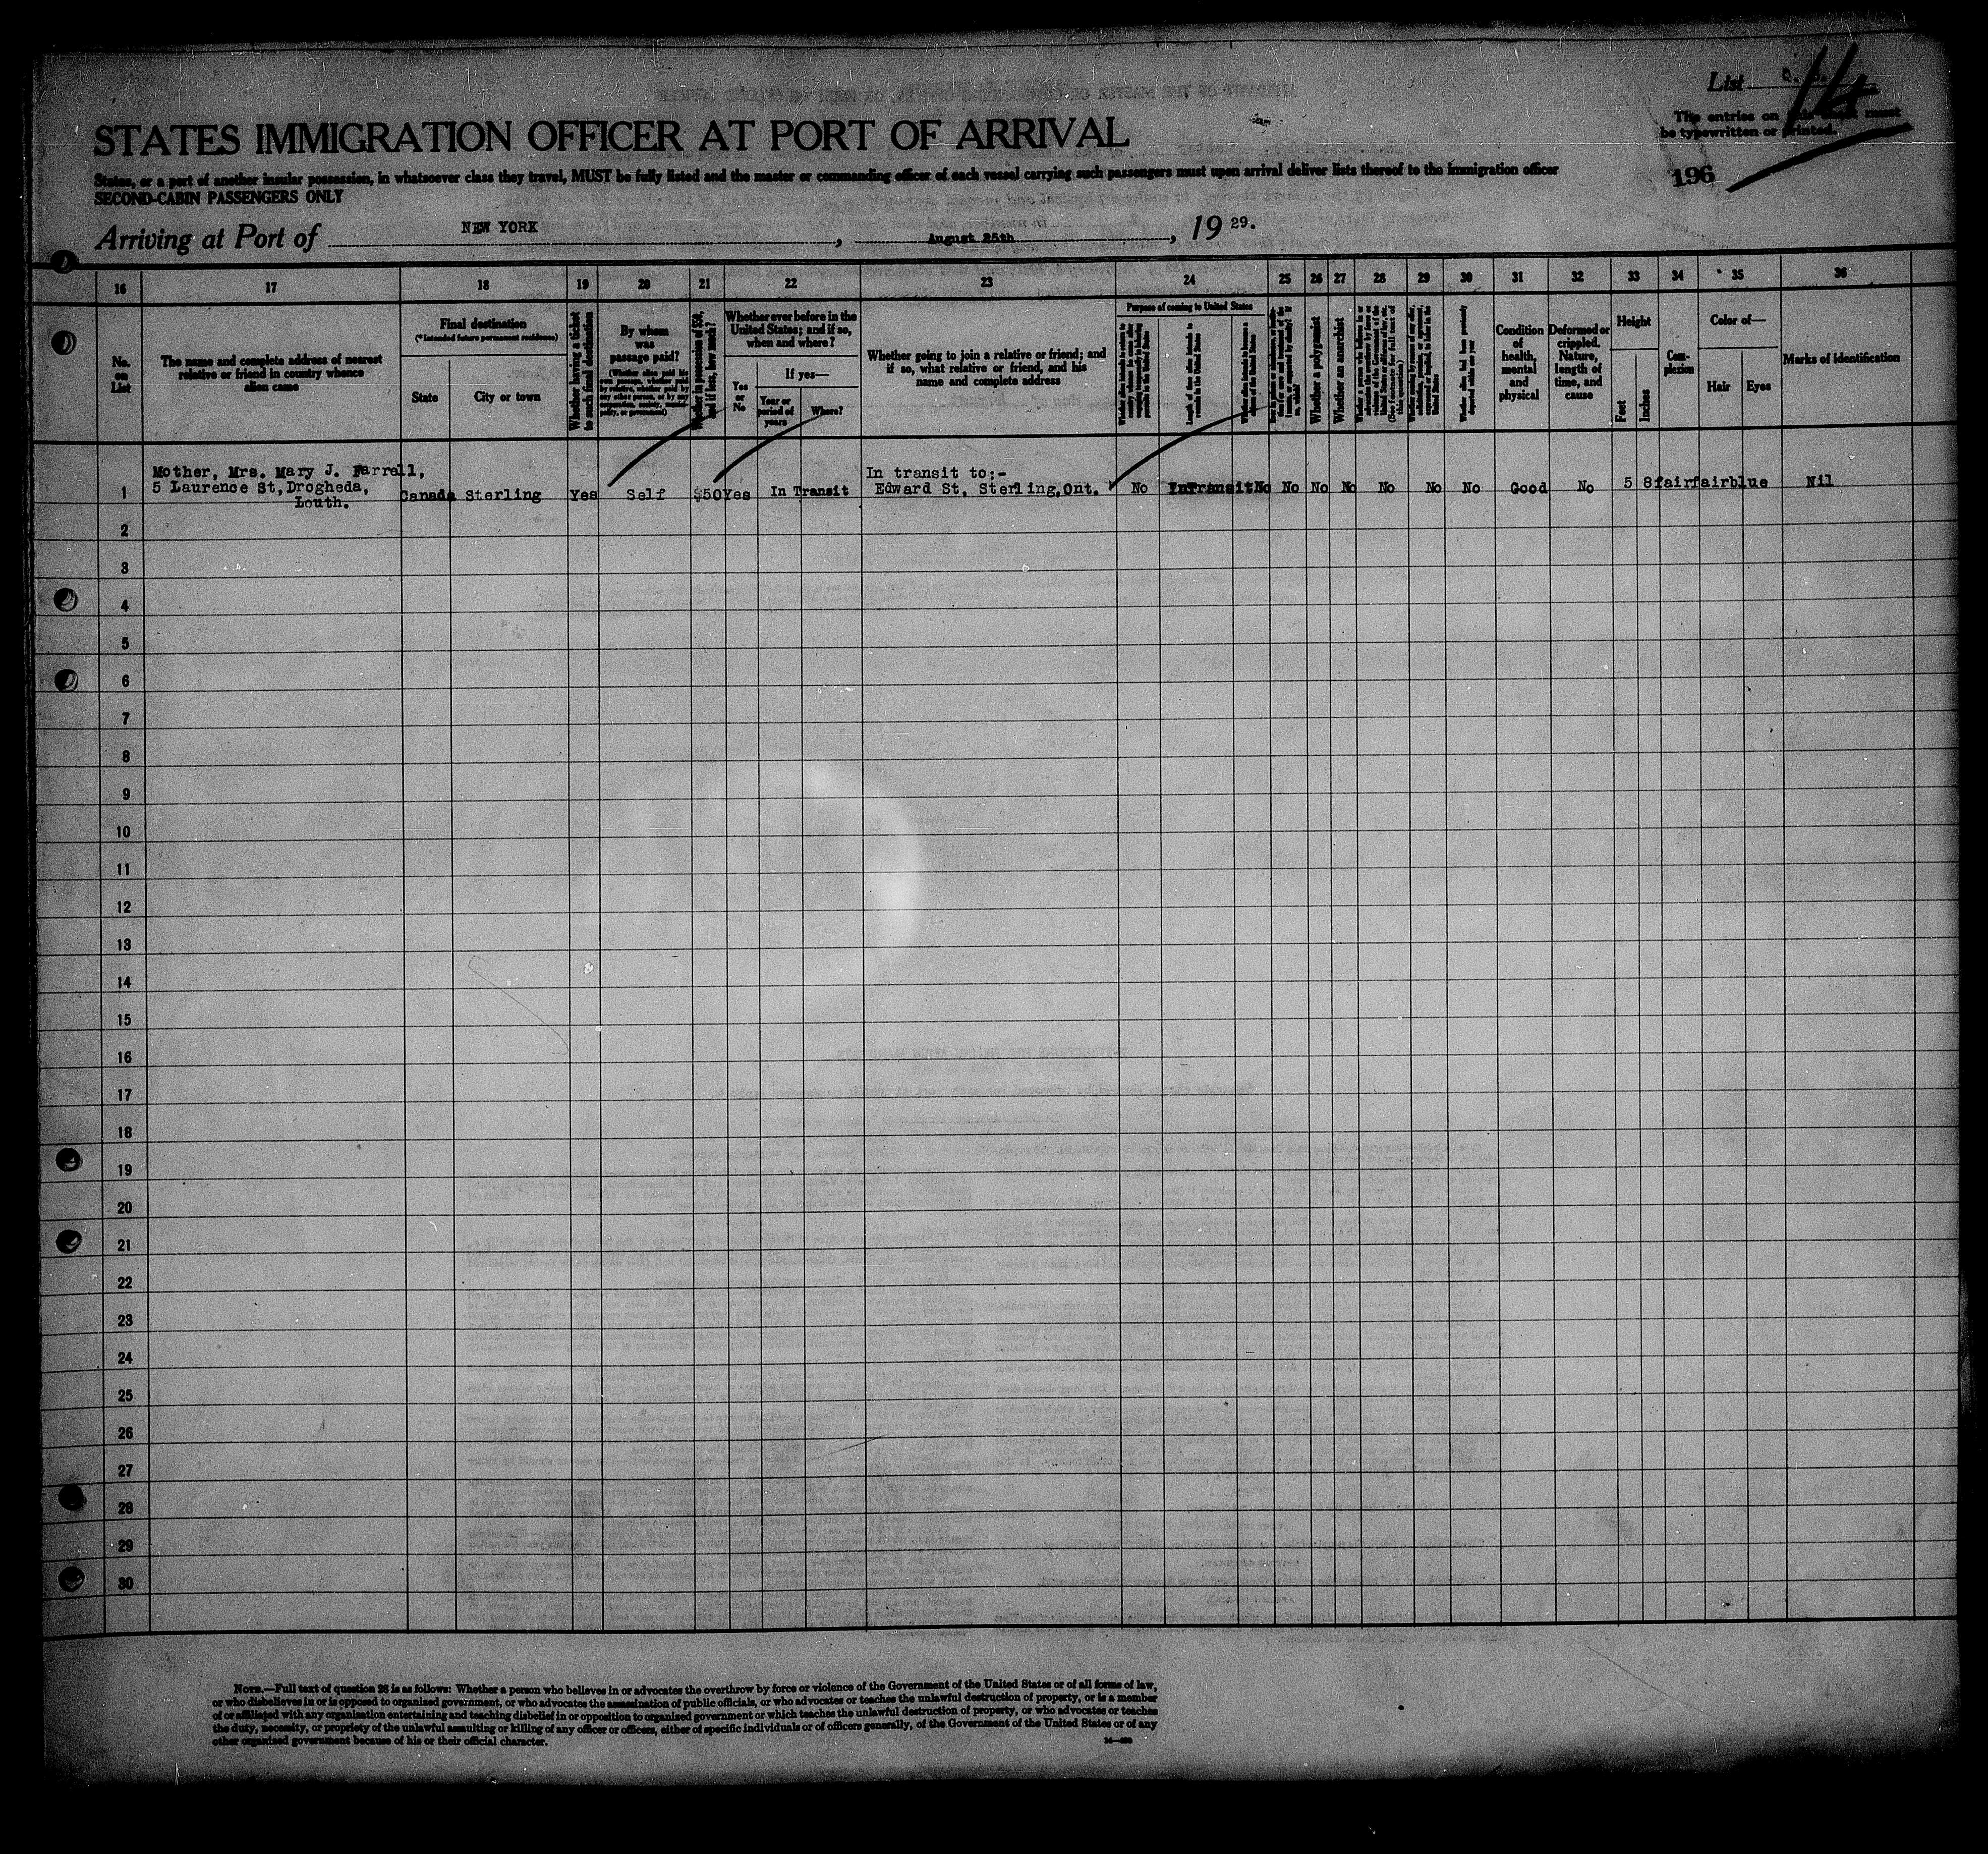 List 14
The entries on this sheet must
be typewritten or printed.
196
STATES IMMIGRATION OFFICER AT PORT OF ARRIVAL
States, or a port of another insular possession, in whatsoever class they travel, MUST be fully listed and the master or commanding officer of each vessel carrying such passengers must upon arrival deliver lists thereof to the immigration officer
SECOND-CABIN PASSENGERS ONLY
Arriving at Port of NEW YORK, August 25th, 19 29.
16 17 18 19 20 21 22 23 24 25 26 27 28 29 30 31 32 33 34 35 36
No. on List
The name and complete address of nearest relative or friend in country whence alien came
Final destination
(*Intended future permanent residence)
State
City or town
Whether having a ticket to such final destination
By whom was passage paid?
(Whether alien paid his own passage, whether paid by relative, whether paid by any other person, or by any corporation, society, municipality, or government)
Whether in possession of $50, and if less, how much?
Whether ever before in the United States; and if so, when and where?
Yes or No
If yes—
Year or period of years
Where?
Whether going to join a relative or friend; and if so, what relative or friend, and his name and complete address
Purpose of coming to United States
Length of time alien intends to remain in the United States
Whether a polygamist
Whether an anarchist
Whether alien had been previously deported within one year
Condition of health, mental and physical
Deformed or crippled. Nature, length of time, and cause
Height
Feet
Inches
Complexion
Color of—
Hair
Eyes
Marks of identification
Mother, Mrs. Mary J. Farrell,
5 Laurence St, Drogheda,
Louth.
1 Canada Sterling Yes Self $50 Yes In Transit
In transit to:-
Edward St, Sterling, Ont.
No InTransit No No No No No No No Good No 5 8 fair fair blue Nil
2
3
4
5
6
7
8
9
10
11
12
13
14
15
16
17
18
19
20
21
22
23
24
25
26
27
28
29
30
NOTE.—Full text of question 28 is as follows: Whether a person who believes in or advocates the overthrow by force or violence of the Government of the United States or of all forms of law,
or who disbelieves in or is opposed to organized government, or who advocates the assassination of public officials, or who advocates or teaches the unlawful destruction of property, or is a member
of or affiliated with any organization entertaining and teaching disbelief in or opposition to organized government or which teaches the unlawful destruction of property, or who advocates or teaches
the duty, necessity, or propriety of the unlawful assaulting or killing of any officer or officers, either of specific individuals or of officers generally, of the Government of the United States or of any
other organized government because of his or their official character.